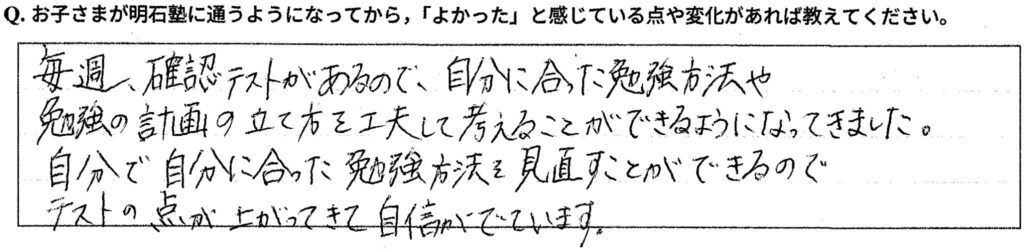 Q. お子さまが明石塾に通うようになってから，「よかった」と感じている点や変化があれば教えてください。
毎週、確認テストがあるので、自分に合った勉強方法や
勉強の計画の立て方を工夫して考えることができるようになってきました。
自分で自分に合った勉強方法を見直すことができるので
テストの点が上がってきて自信がでています。